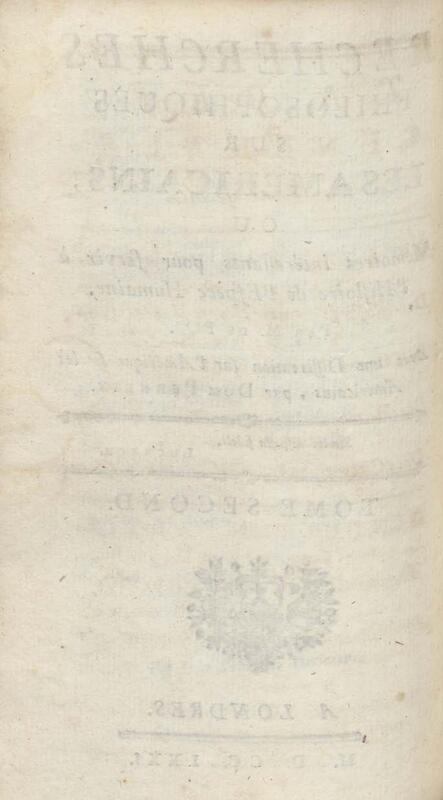 RECHERCHES
PHILOSOPHIQUES
SUR
LES AMERICAINS,
OU
Mémoires intéressants pour servir à
l'Histoire de l'Espèce Humaine.
Par M. DE P***.
Avec une Dissertation sur l'Amérique & les
Américains, par DOM PERNETY.
TOME SECOND.
A LONDRES.